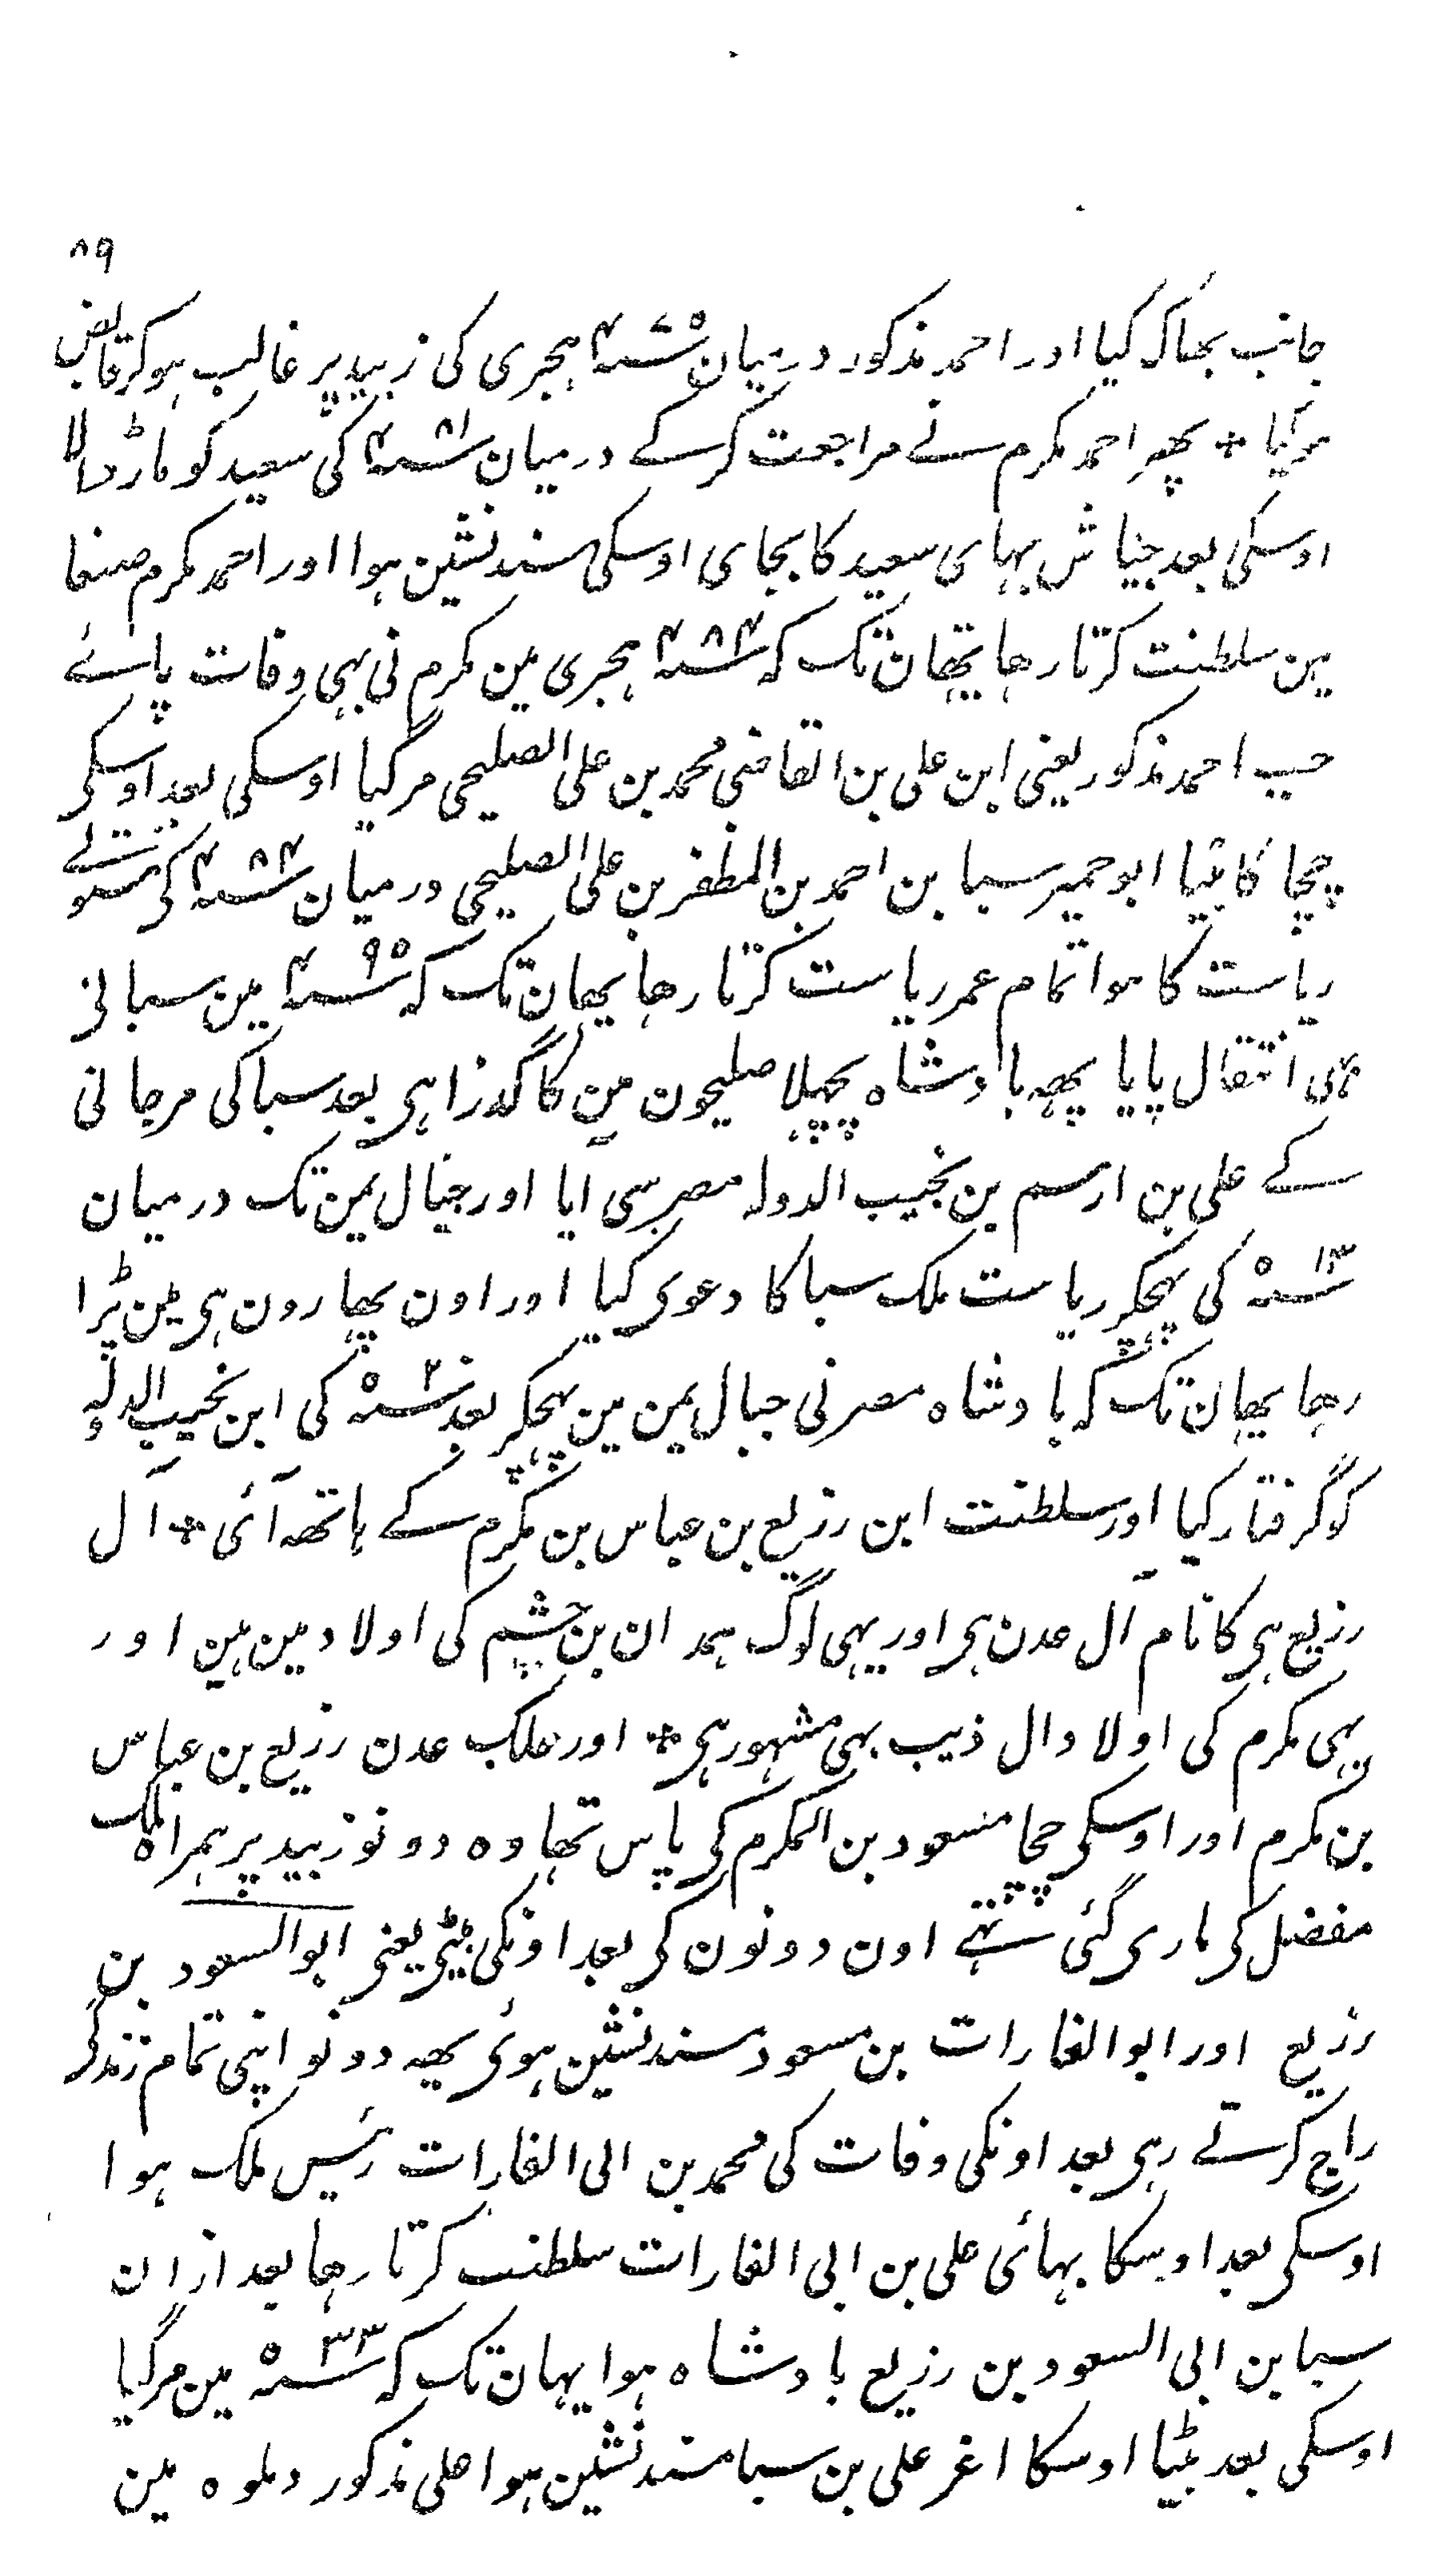 ۸۹
جانب بھاگ گیا اور احمد مذکور درمیان ۴۷۵ سنہ ہجری کی زبید پر غالب ہو کر قابض
ہوگیا + پھر احمد مکرم نے مراجعت کرکے درمیان ۴۸۱ سنہ کی سعید کو مار ڈالا
اوسکی بعد جیاش بہای سعید کا بجای اوسکی مسند نشین ہوا اور احمد مکرم صنعا
مین سلطنت کرتا رہا یہان تک کہ ۴۸۴ سنہ ہجری مین مکرم نی بہی وفات پائے
جب احمد مذکور یعنی ابن علی بن القاضی محمد بن علی الصلیحی مرگیا اوسکی بعد اوسکی
چچا کا بیٹا ابو حمیر سبا بن احمد بن المظفر بن علی الصلیحی درمیان ۴۸۴ سنہ کی متولے
ریاست کا ہوا تمام عمر ریاست کرتا رہا یہان تک کہ ۴۹۵ سنہ مین سبا نی
بہی انتقال پایا یہہ بادشاہ پچھلا صلیحون مین کا گذرا ہی بعد سبا کی مرجانی
کے علی بن ارسم بن نجیب الدولہ مصر سی ایا اور جبال یمن تک درمیان
۵۱۳ سنہ کی پہچکر ریاست ملک سبا کا دعوی کیا اور اون پہارون ہی مین پڑا
رہا یہان تک کہ بادشاہ مصر نی جبال یمن مین پہچکر بعد ۵۲۰ سنہ کی ابن نجیب الدولہ
کو گرفتار کیا اور سلطنت ابن زریع بن عباس بن مکرم کے ہاتھہ آئی + آل
زریع ہی کا نام آل عدن ہی اور یہی لوگ ہمدان بن جشم کی اولاد مین ہین اور
یہی مکرم کی اولاد ال ذیب بہی مشہور ہی + اور ملک عدن زریع بن عباس
بن مکرم اور اوسکی چچا مسعود بن المکرم کی پاس تہا وہ دونو زبید پر ہمراہ ملک
مفضل کی ماری گئی تہے اون دونون کی بعد اونکی بیٹی یعنی ابو السعود بن
زریع اور ابو الغارات بن مسعود مسند نشین ہوئی یہہ دونو اپنی تمام زندگی
راج کرتے رہی بعد اونکی وفات کی محمد بن ابی الغارات رئیس ملک ہوا
اوسکی بعد اوسکا بہائی علی بن ابی الغارات سلطنت کرتا رہا بعد ازان
سبا بن ابی السعود بن زریع بادشاہ ہوا یہان تک کہ ۵۳۳ سنہ مین مرگیا
اوسکی بعد بیٹا اوسکا اغر علی بن سبا مسند نشین ہوا علی مذکور دملوہ مین